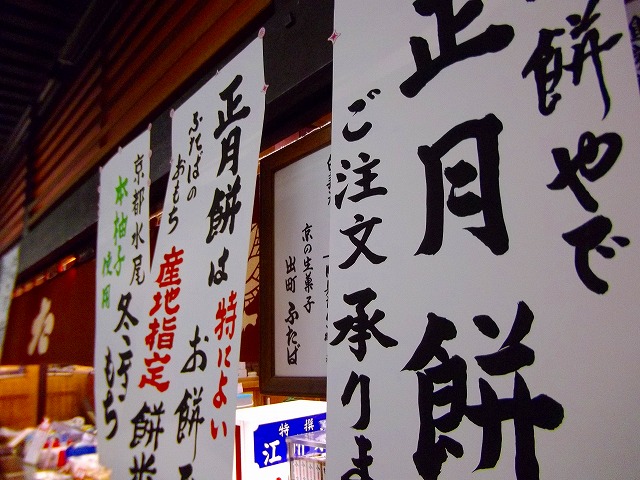 餅やで
正月餅
ご注文承りま
京の生菓子
出町 ふたば
特撰
江
正月餅は特によい
ふたばのおもち
産地指定
お餅
餅米
京都水尾
本柚子使用
冬ゆずもち